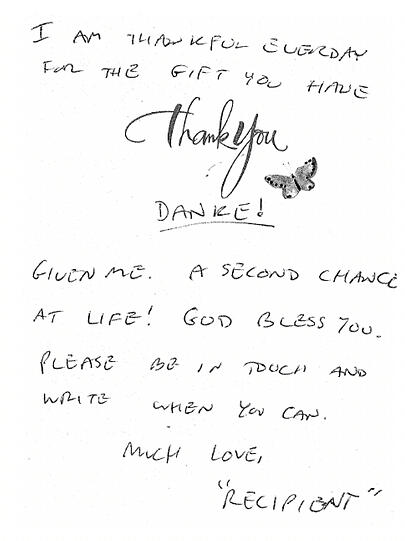 I AM THANKFUL EVERDAY
FOR THE GIFT YOU HAVE
Thank You
DANKE!
GIVEN ME. A SECOND CHANCE
AT LIFE! GOD BLESS YOU.
PLEASE BE IN TOUCH AND
WRITE WHEN YOU CAN.
MUCH LOVE,
"RECIPIENT"